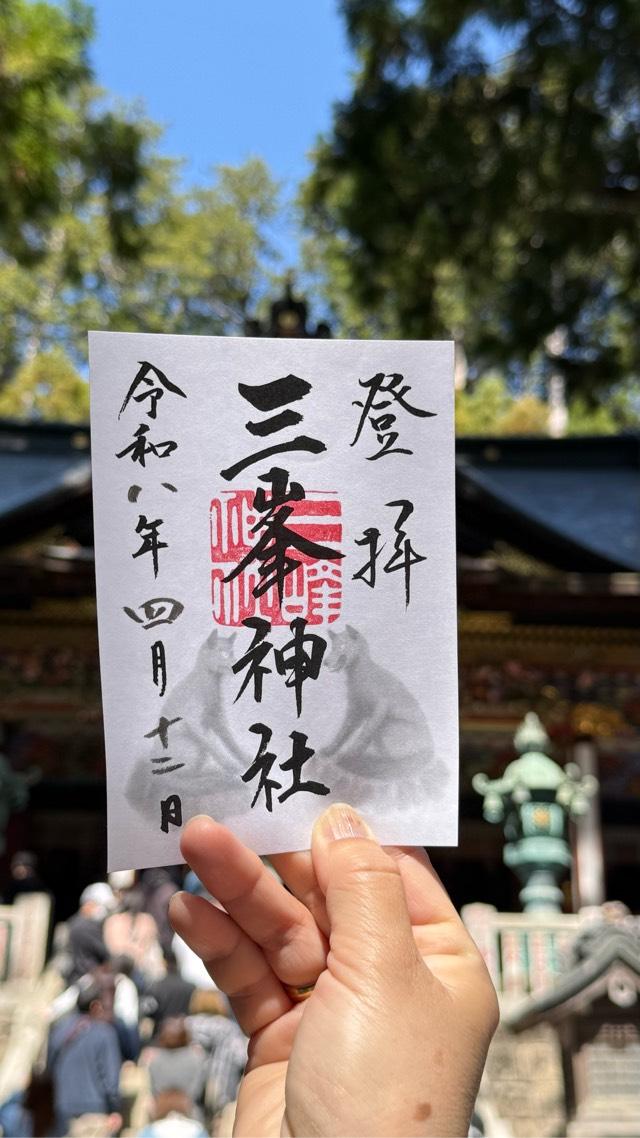 登拝
三峯神社
令和八年四月十二日